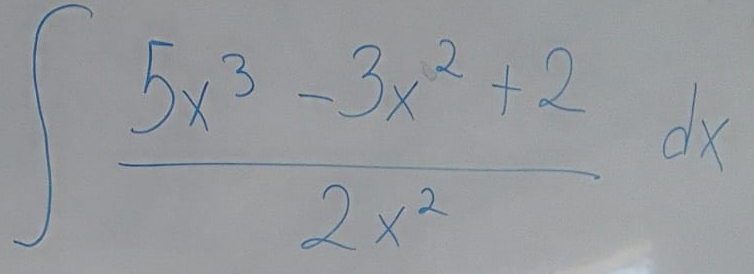 ∫ (5x³ - 3x² + 2) / (2x²) dx